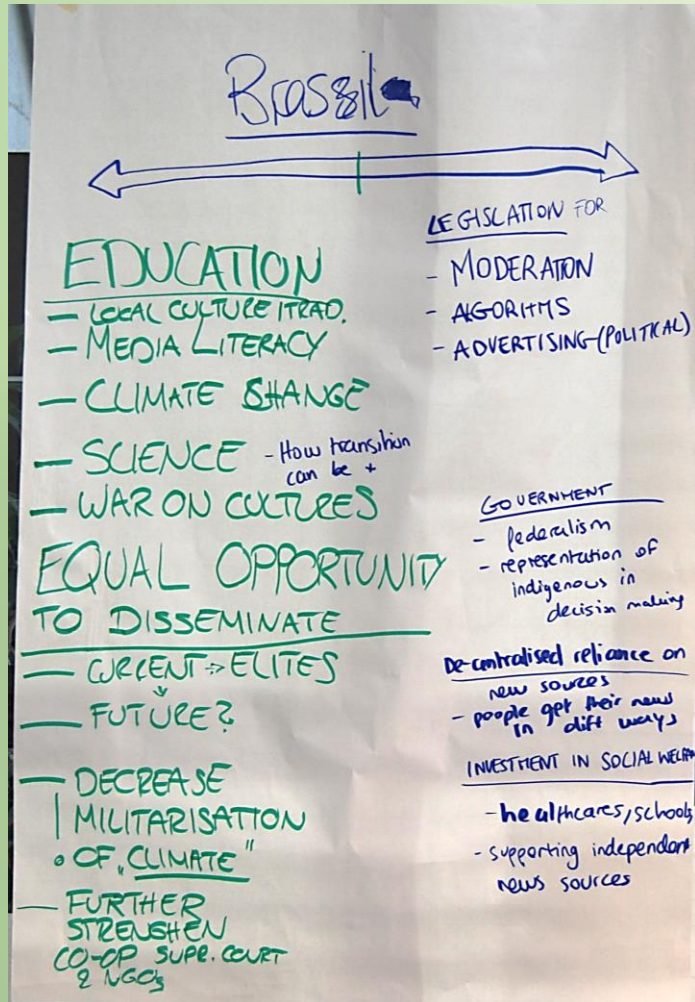 Brassil
EDUCATION
— LOCAL CULTURE ITRAD.
— MEDIA LITERACY
— CLIMATE CHANGE
— SCIENCE - How transition
can be +
— WAR ON CULTURES
EQUAL OPPORTUNITY
TO DISSEMINATE
— CURRENT → ELITES
— FUTURE?
— DECREASE
MILITARISATION
• OF „CLIMATE"
— FURTHER
STRENGHEN
CO-OP SUPR. COURT
& NGOs
LEGISLATION FOR
- MODERATION
- ALGORITHMS
- ADVERTISING (POLITICAL)
GOVERNMENT
- federalism
- representation of
indigenous in
decision making
De-centralised reliance on
new sources
- people get their news
in diff ways
INVESTMENT IN SOCIAL WELFARE
- healthcares/schools
- supporting independant
news sources